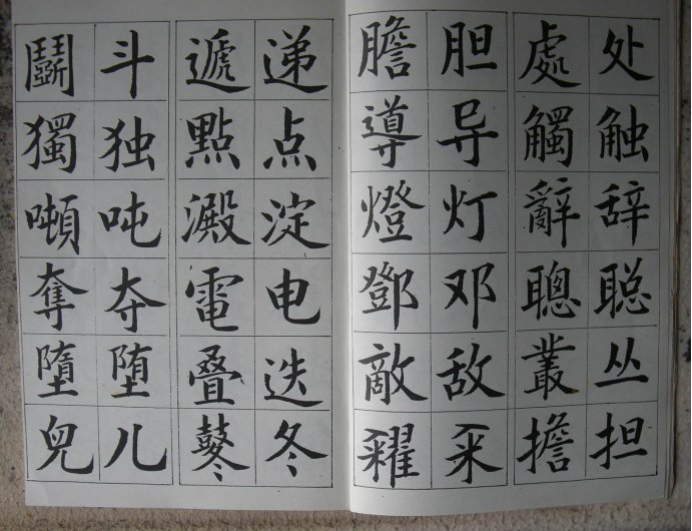 處 处
觸 触
辭 辞
聰 聪
叢 丛
擔 担
膽 胆
導 导
燈 灯
鄧 邓
敵 敌
糴 籴
遞 递
點 点
澱 淀
電 电
叠 迭
鼕 冬
鬭 斗
獨 独
噸 吨
奪 夺
墮 堕
兒 儿